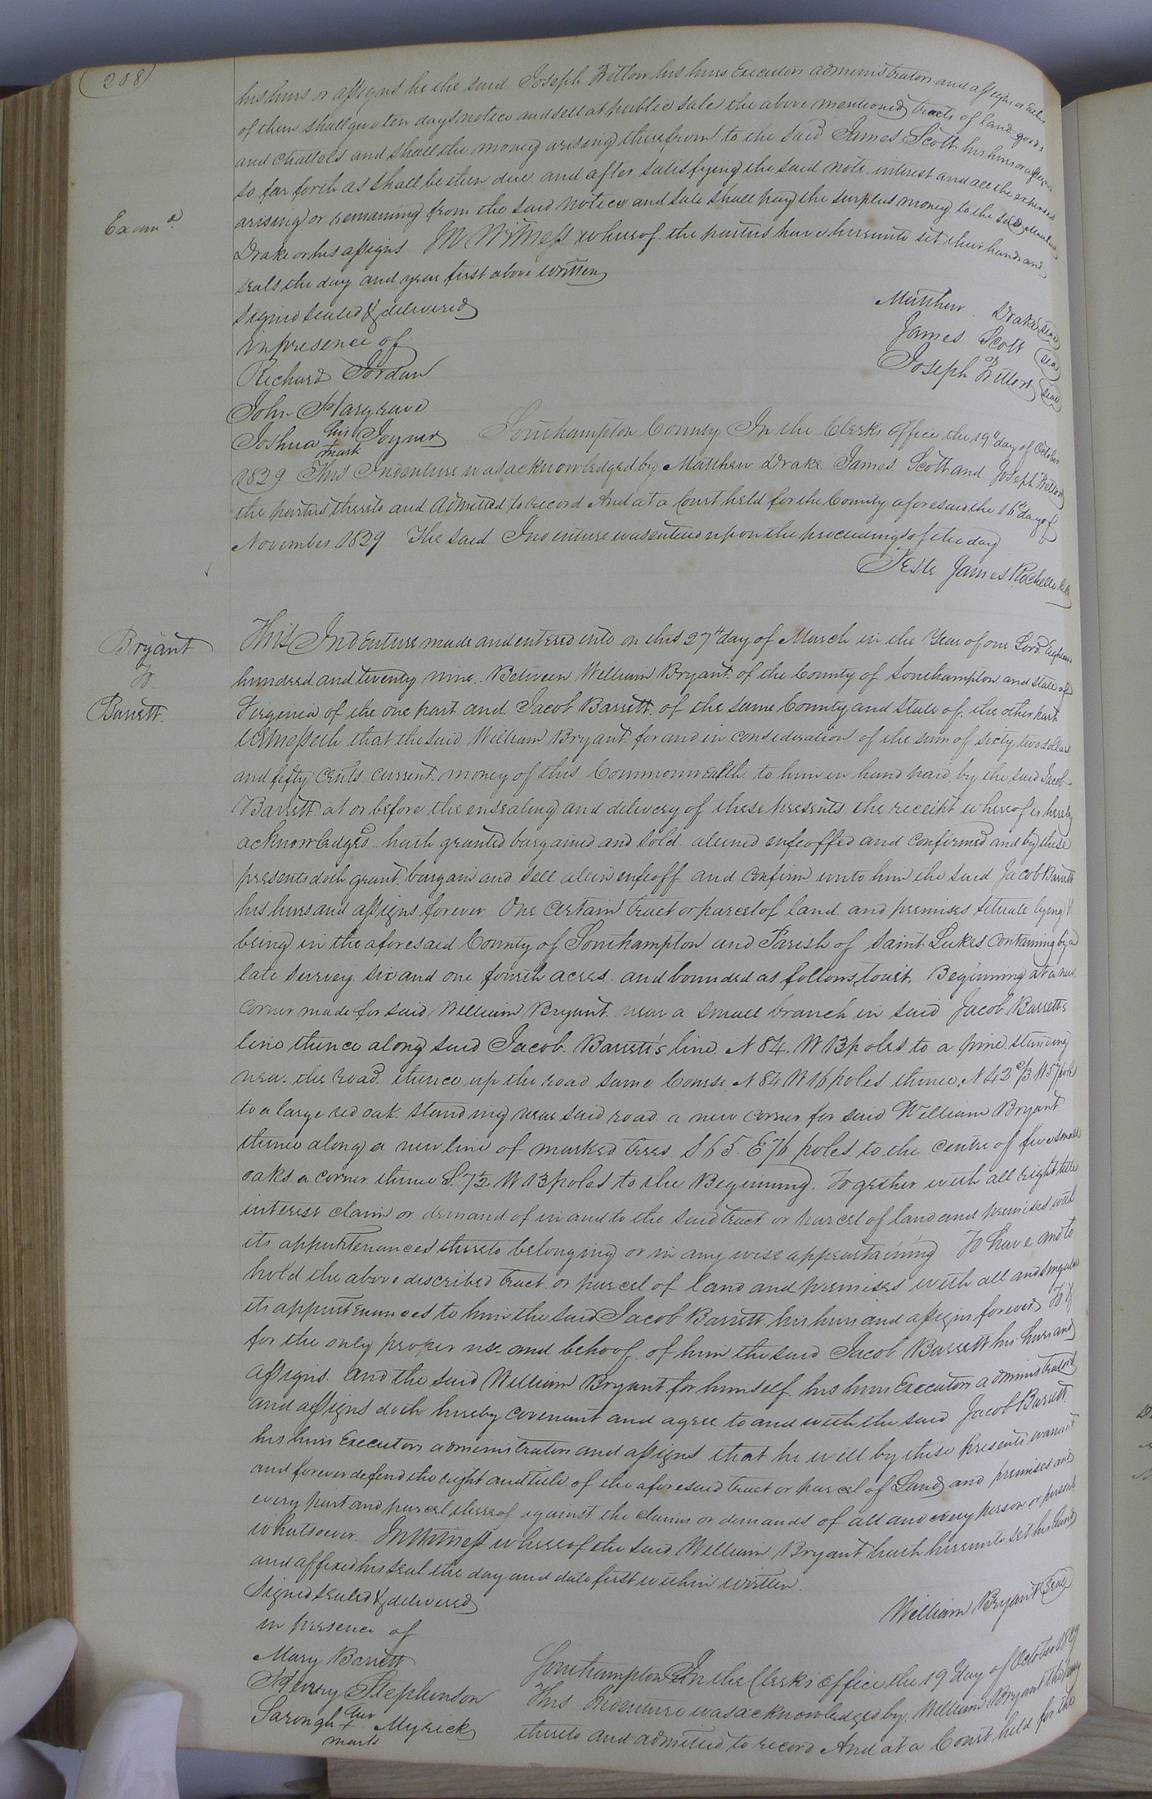 208
his heirs or assigns he the said Joseph Bitton his heirs Executors administrators and assigns or either
of them shall give ten days notice and sell at public sale the above mentioned tracts of land goods
and chattels and shall the money arising therefrom to the said James Scott his heirs or assigns
so far forth as shall be then due and after satisfying the said note interest and all the expences
Exam.d
arising or remaining from the said notice and sale shall pay the surplus money to the said Matthew
Drake or his assigns In Witness whereof the parties have hereunto set their hands and
seals the day and year first above written
Signed sealed & delivered
in presence of
Richard Jordan
John Hargrave
Joshua his mark Joyner
Matthew Drake seal
James Scott seal
Joseph Bitton seal
Southampton County In the Clerks Office the 19th day of October
1829 This Indenture was acknowledged by Matthew Drake James Scott and Joseph Bitton
the parties thereto and admitted to record And at a Court held for the County aforesaid the 16th day of
November 1829 The said Indenture was entered upon the proceedings of the day
Teste James Rochelle Clk
Bryant
To
Barrett
This Indenture made and entered into on this 27th day of March in the Year of our Lord Eighteen
hundred and twenty nine Between William Bryant of the County of Southampton and State of
Virginia of the one part and Jacob Barrett of the same County and State of the other part
Witnesseth that the said William Bryant for and in consideration of the sum of sixty two dollars
and fifty Cents current money of this Commonwealth to him in hand paid by the said Jacob
Barrett at or before the ensealing and delivery of these presents the receipt whereof is hereby
acknowledged hath granted bargained and sold aliened enfeoffed and confirmed and by these
presents doth grant bargain and sell alien enfeoff and confirm unto him the said Jacob Barrett
his heirs and assigns forever One certain tract or parcel of land and premises situate lying &
being in the aforesaid County of Southampton and Parish of Saint Lukes Containing by a
late survey six and one fourth acres and bounded as follows towit, Beginning at a new
corner made for said William Bryant near a small branch in said Jacob Barrett's
line thence along said Jacob Barrett's line N 84 W 13 poles to a pine standing
near the road thence up the road same Course N 84 W 16 poles thence N 42 2/3 W 57 poles
to a large red oak standing near said road a new corner for said William Bryant
thence along a new line of marked trees S 65 E 76 poles to the centre of five small
oaks a corner thence S 7 1/2 W 13 poles to the Beginning. Together with all right title
interest claim or demand of in and to the said tract or parcel of land and premises with
its appurtenances thereto belonging or in any wise appertaining To have and to
hold the above described tract or parcel of land and premises with all and singular
its appurtenances to him the said Jacob Barrett his heirs and assigns forever To &
for the only proper use and behoof of him the said Jacob Barrett his heirs and
assigns. And the said William Bryant for himself his heirs Executors administrators
and assigns doth hereby covenant and agree to and with the said Jacob Barrett
his heirs Executors administrators and assigns that he will by these presents warrant
and forever defend the right and title of the aforesaid tract or parcel of Land and premises and
every part and parcel thereof against the claims or demands of all and every person or persons
whatsoever. In Witness whereof the said William Bryant hath hereunto set his hand
and affixed his seal the day and date first within written.
Signed sealed & delivered
in presence of
Mary Barrett
Henry Stephenson
Sarough her + mark Myrick
William Bryant Seal
Southampton In the Clerks Office the 19 day of October 1829
This Indenture was acknowledged by William Bryant the party
thereto and admitted to record And at a Court held for the